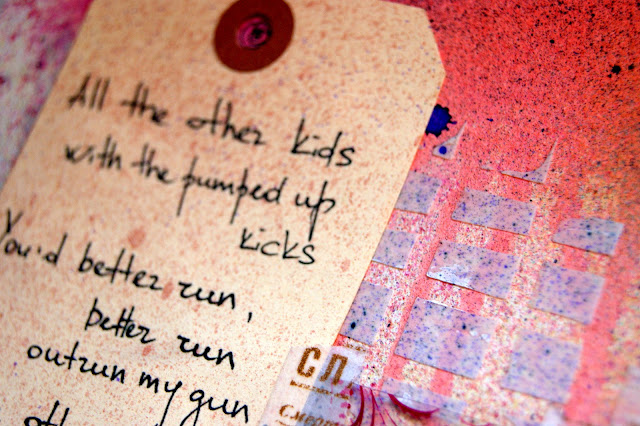 All the other kids
with the pumped up
kicks
You'd better run,
better run
outrun my gun
СЛ